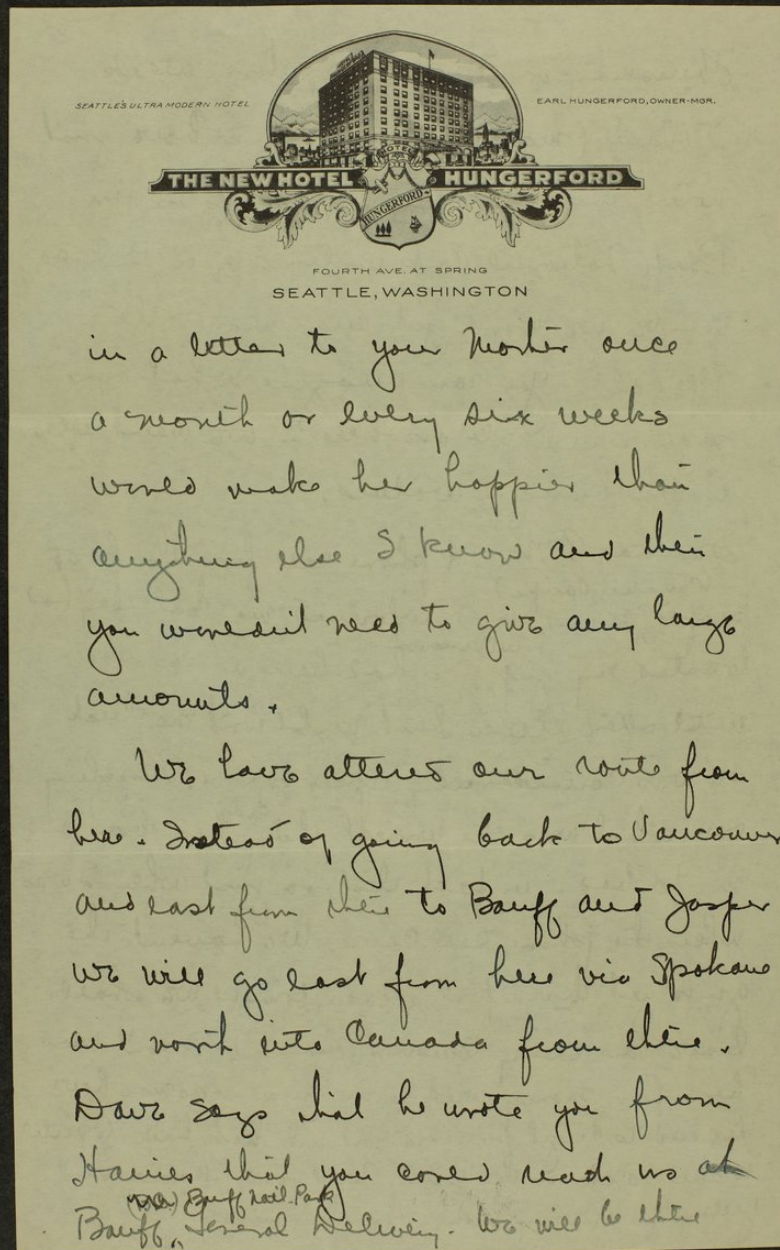 SEATTLE'S ULTRA MODERN HOTEL
EARL HUNGERFORD, OWNER-MGR.
HOTEL
THE NEW HOTEL HUNGERFORD
HUNGERFORD
FOURTH AVE. AT SPRING
SEATTLE, WASHINGTON
in a letter to your Mother once
a month or every six weeks
would make her happier than
anything else I know and then
you wouldn't need to give any large
amounts.
We have altered our route from
here. Instead of going back to Vancouver
and east from there to Banff and Jasper
we will go east from here via Spokane
and north into Canada from there.
Dave says that he wrote you from
Haines that you could reach us at
Banff Natl. Park
Banff, General Delivery. We will be there